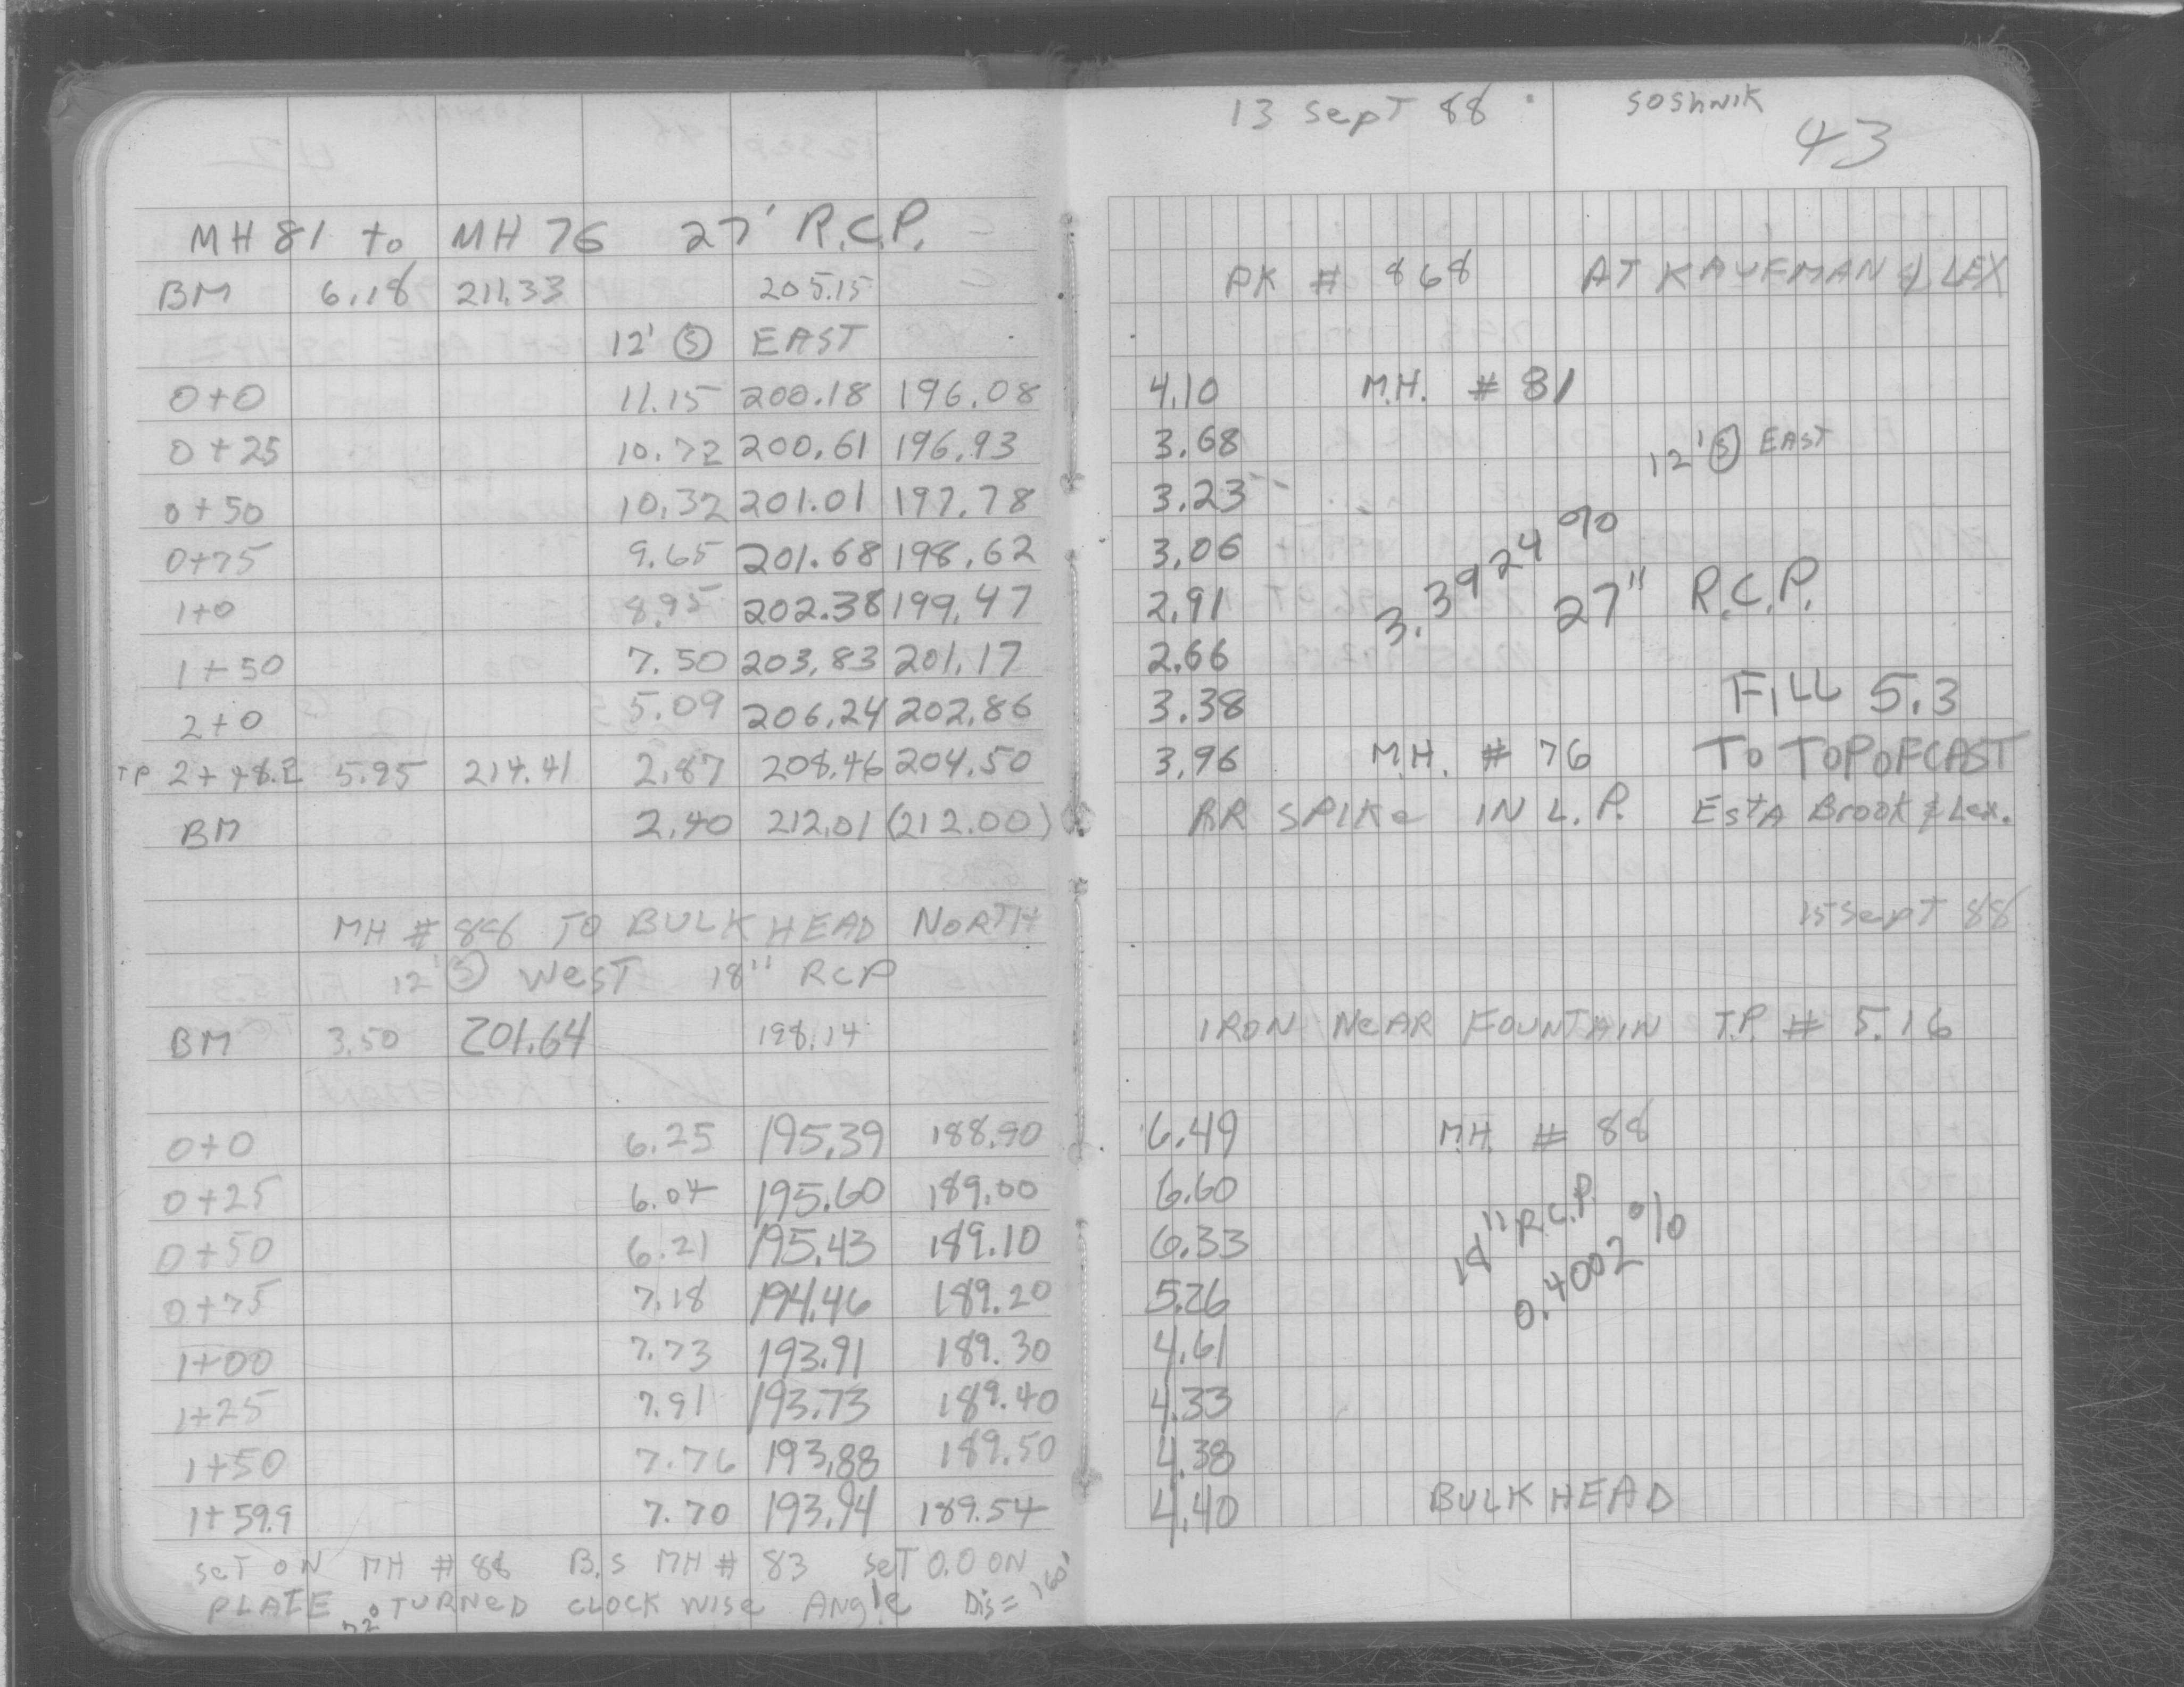 13 Sept 88 SOSHNIK
43
MH 81 to MH 76 27' R.C.P.
BM 6.18 211.33 205.15 PK # 868 AT KAUFMAN & LEX
12' Ⓢ EAST
0+0 11.15 200.18 196.08 4.10 M.H. # 81
0+25 10.72 200.61 196.93 3.68 12' Ⓢ EAST
0+50 10.32 201.01 197.78 3.23
0+75 9.65 201.68 198.62 3.06 3.3924 %
1+0 8.95 202.38 199.47 2.91 27" R.C.P.
1+50 7.50 203.83 201.17 2.66
2+0 5.09 206.24 202.86 3.38 FILL 5.3
TP 2+48.2 5.95 214.41 2.87 208.46 204.50 3.96 M.H. # 76 TO TOP OF CAST
BM 2.40 212.01 (212.00) RR SPIKe IN L.P. EstA Brook & Lex.
MH # 88 TO BULK HEAD NORTH 15 Sept 88
12' Ⓢ WesT 18" RCP
BM 3.50 201.64 198.14 IRON NeAR FOUNTAIN T.P. # 5.16
0+0 6.25 195.39 188.90 6.49 M.H. # 88
0+25 6.04 195.60 189.00 6.60 18" R.C.P
0+50 6.21 195.43 189.10 6.33 0.4002 %
0+75 7.18 194.46 189.20 5.26
1+00 7.73 193.91 189.30 4.61
1+25 7.91 193.73 189.40 4.33
1+50 7.76 193.88 189.50 4.38
1+59.9 7.70 193.94 189.54 4.40 BULK HEAD
SeT ON MH # 88 B.S MH # 83 SeT 0.0 ON
PLATE TURNeD CLOCK WISe ANgle Dis = 160'
72°